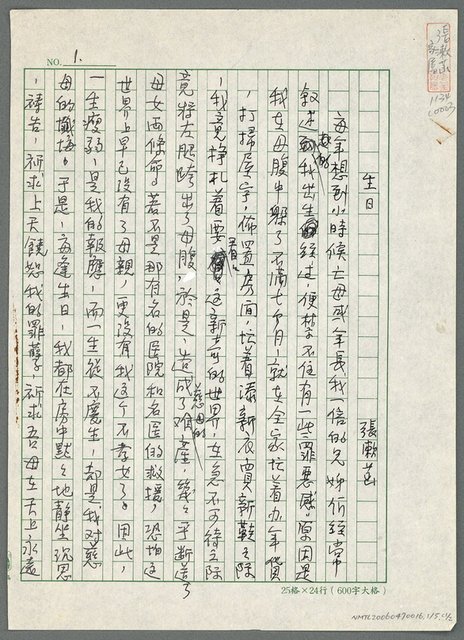 NO. 1.
生日
張漱菡
每至想到小時候亡母或年長我一倍的兄姊們經常
敘述起我出生的經過，便禁不住有一些罪惡感。原因是
我在母腹中躲了不滿七個月，就在全家忙着办年貨
，打掃屋宇，佈置房間，忙着添新衣買新鞋之際
，我竟掙扎着要看看這新奇的世界，在急不可待之際
竟將左腿跨出了母腹，於是，造成了慈母的難產，幾乎斷送了
母女兩條命。若不是那有名的医院和名医的救援，恐怕這
世界上早已沒有了母親，更沒有我這个不孝女了。因此，
一生瘦弱，是我的報應，而一生從不慶生，却是我对慈
母的懺悔。于是，每逢生日，我都在房中默々地靜坐沉思
，禱告，祈求上天饒恕我的罪孽，祈求吾母在天上永遠
25格×24行（600字大格）
NMTL20060470016.1/5.(1/2)